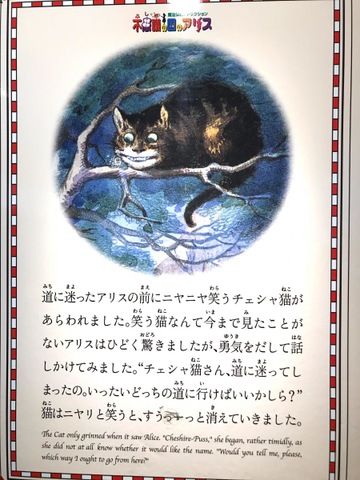 不思議の国のアリス
みち まよ まえ わら ねこ
道に迷ったアリスの前にニヤニヤ笑うチェシャ猫が
わら ねこ いま み
あらわれました。笑う猫なんて今まで見たことが
おどろ ゆうき はな
ないアリスはひどく驚きましたが、勇気をだして話
ねこ みち まよ
しかけてみました。“チェシャ猫さん、道に迷ってし
みち い
まったの。いったいどっちの道に行けばいいかしら?”
ねこ わら き
猫はニヤリと笑うと、すぅーっと消えていきました。
The Cat only grinned when it saw Alice. "Cheshire-Puss," she began, rather timidly, as
she did not at all know whether it would like the name. "Would you tell me, please,
which way I ought to go from here?"